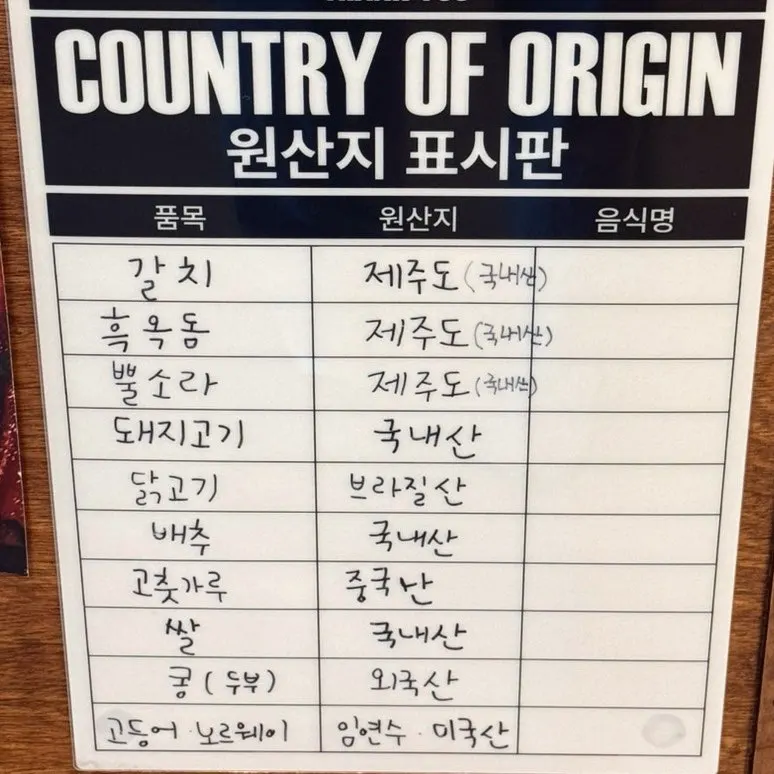 COUNTRY OF ORIGIN
원산지 표시판
품목 원산지 음식명
갈치 제주도(국내산)
흑옥돔 제주도(국내산)
뿔소라 제주도(국내산)
돼지고기 국내산
닭고기 브라질산
배추 국내산
고춧가루 중국난
쌀 국내산
콩(두부) 외국산
고등어·노르웨이 임연수·미국산